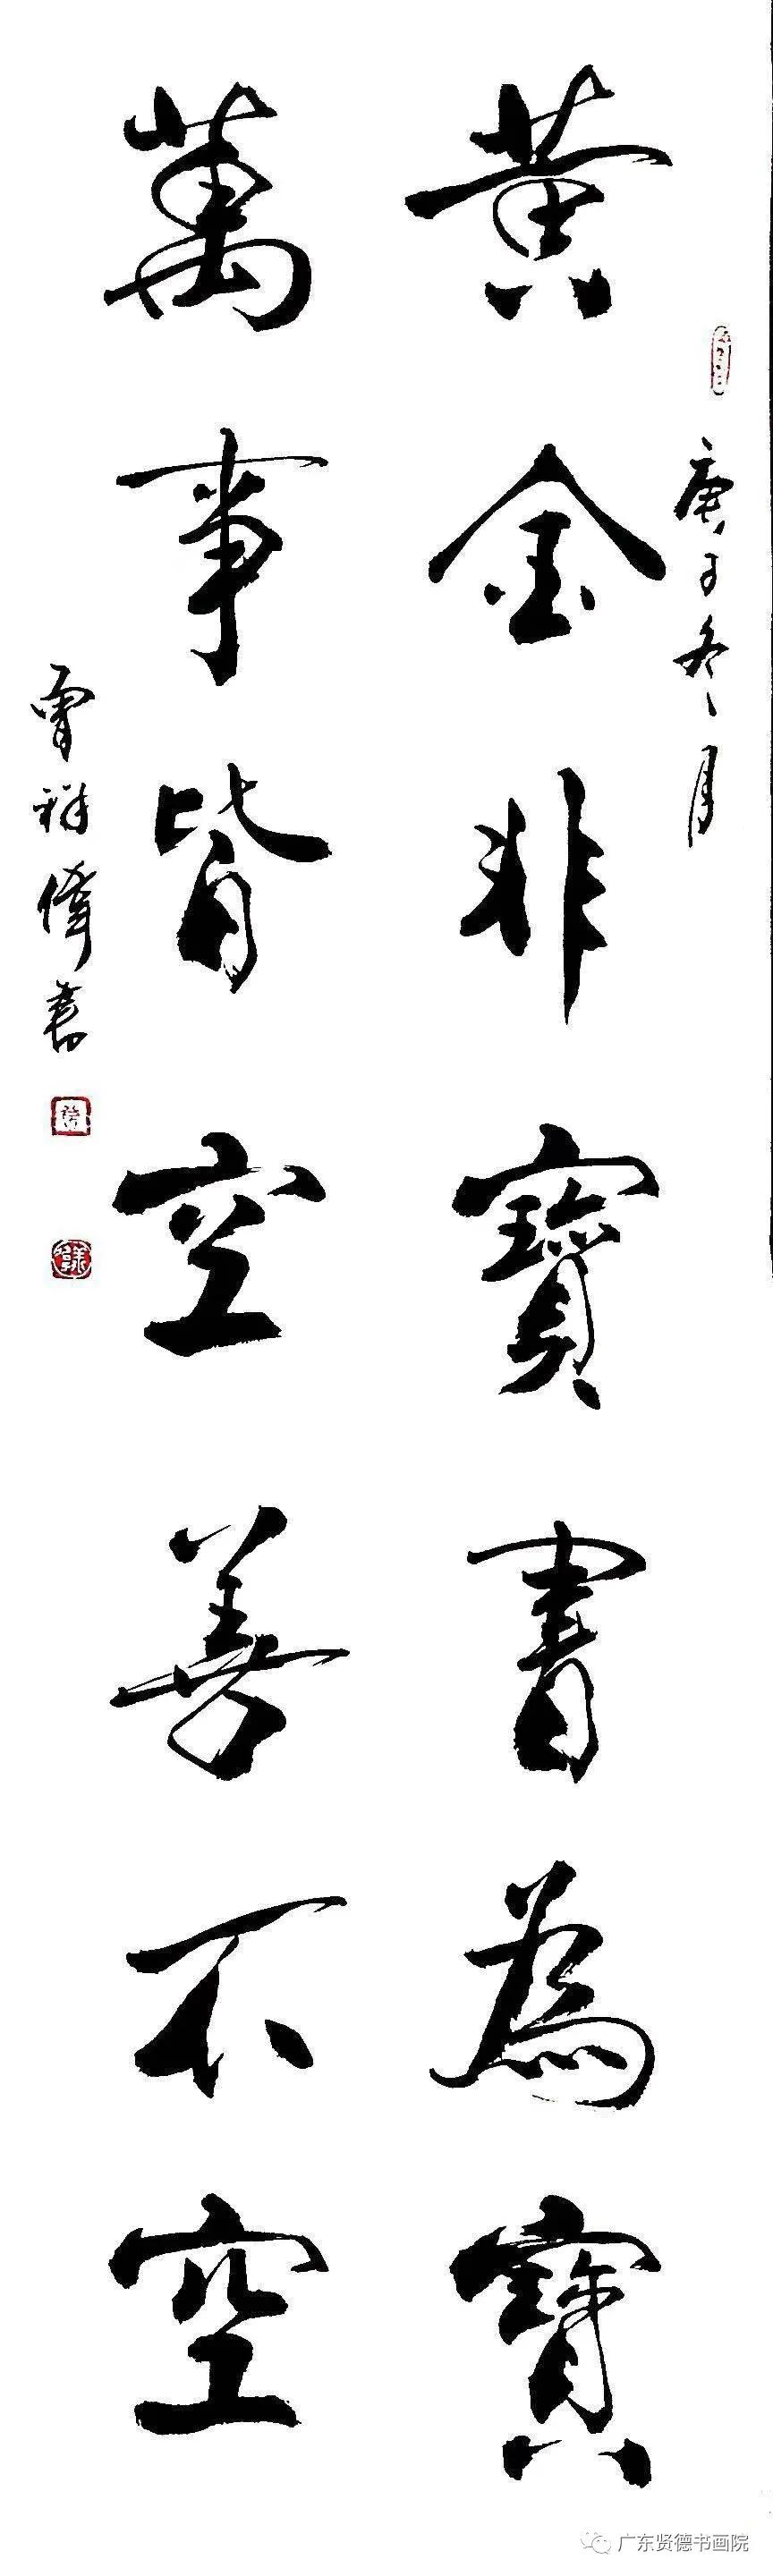 庚子冬月
黄金非寶書為寶
萬事皆空善不空
曹祥偉書
广东贤德书画院